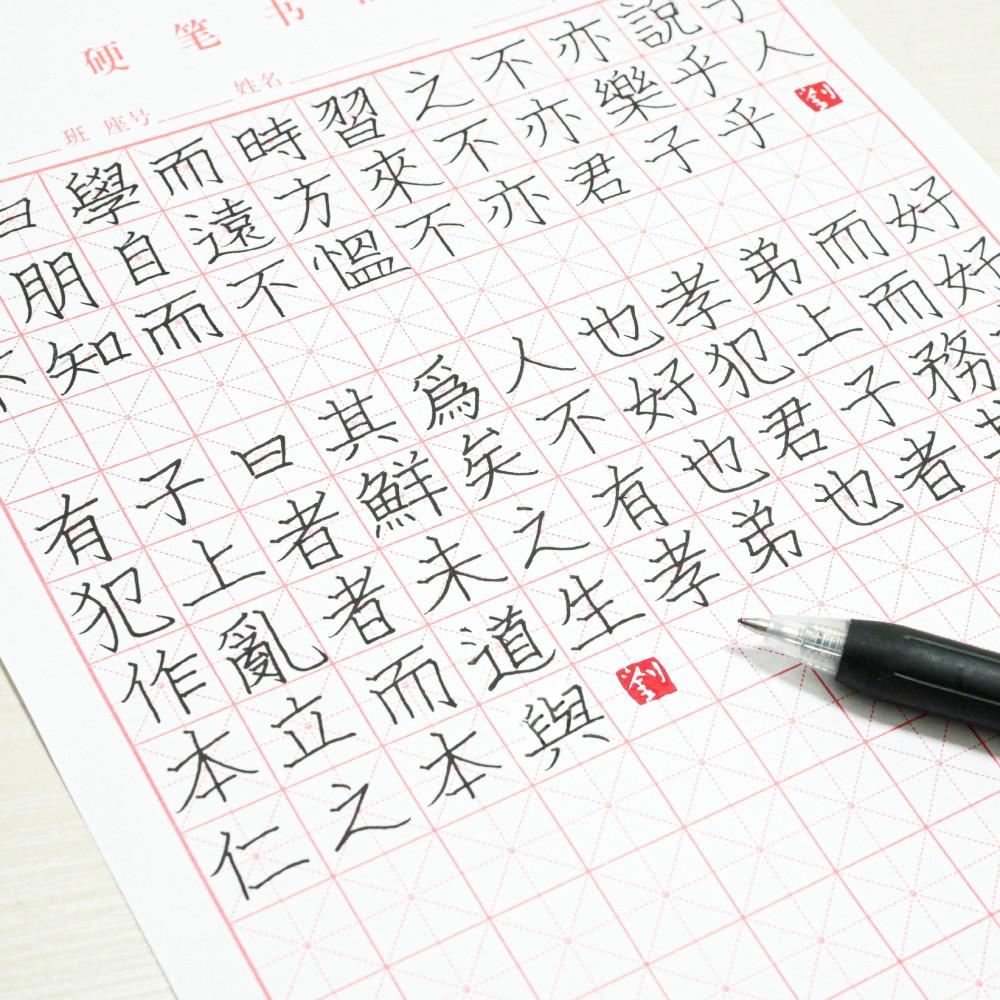 硬笔书
班 座号 姓名
曰學而時習之不亦說乎
朋自遠方來不亦樂乎人
不知而不愠不亦君子乎 劉
有子曰其爲人也孝弟而好
犯上者鮮矣不好犯上而好
作亂者未之有也君子務
本立而道生孝弟也者
仁之本與 劉